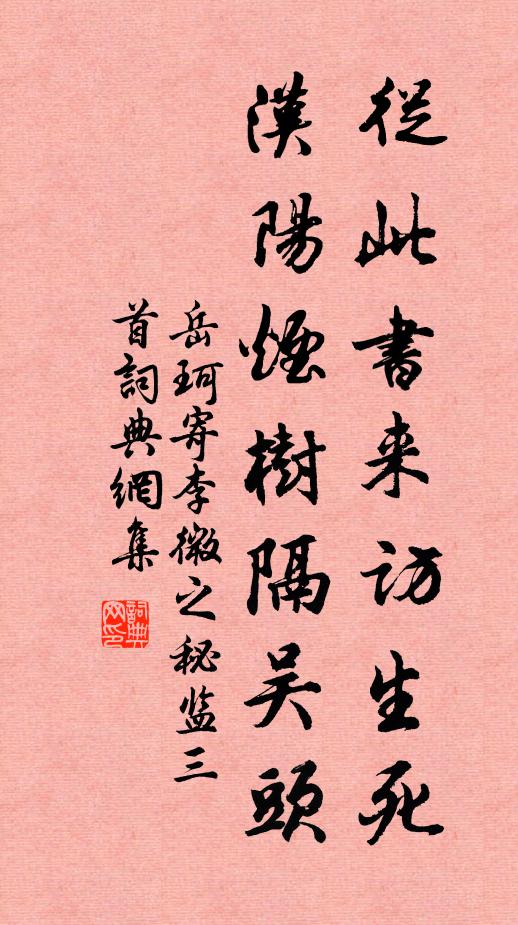 從此書来访生死
漢陽煙樹隔吴頭
岳珂寄李微之秘监三
首詞典網集
詞典网印